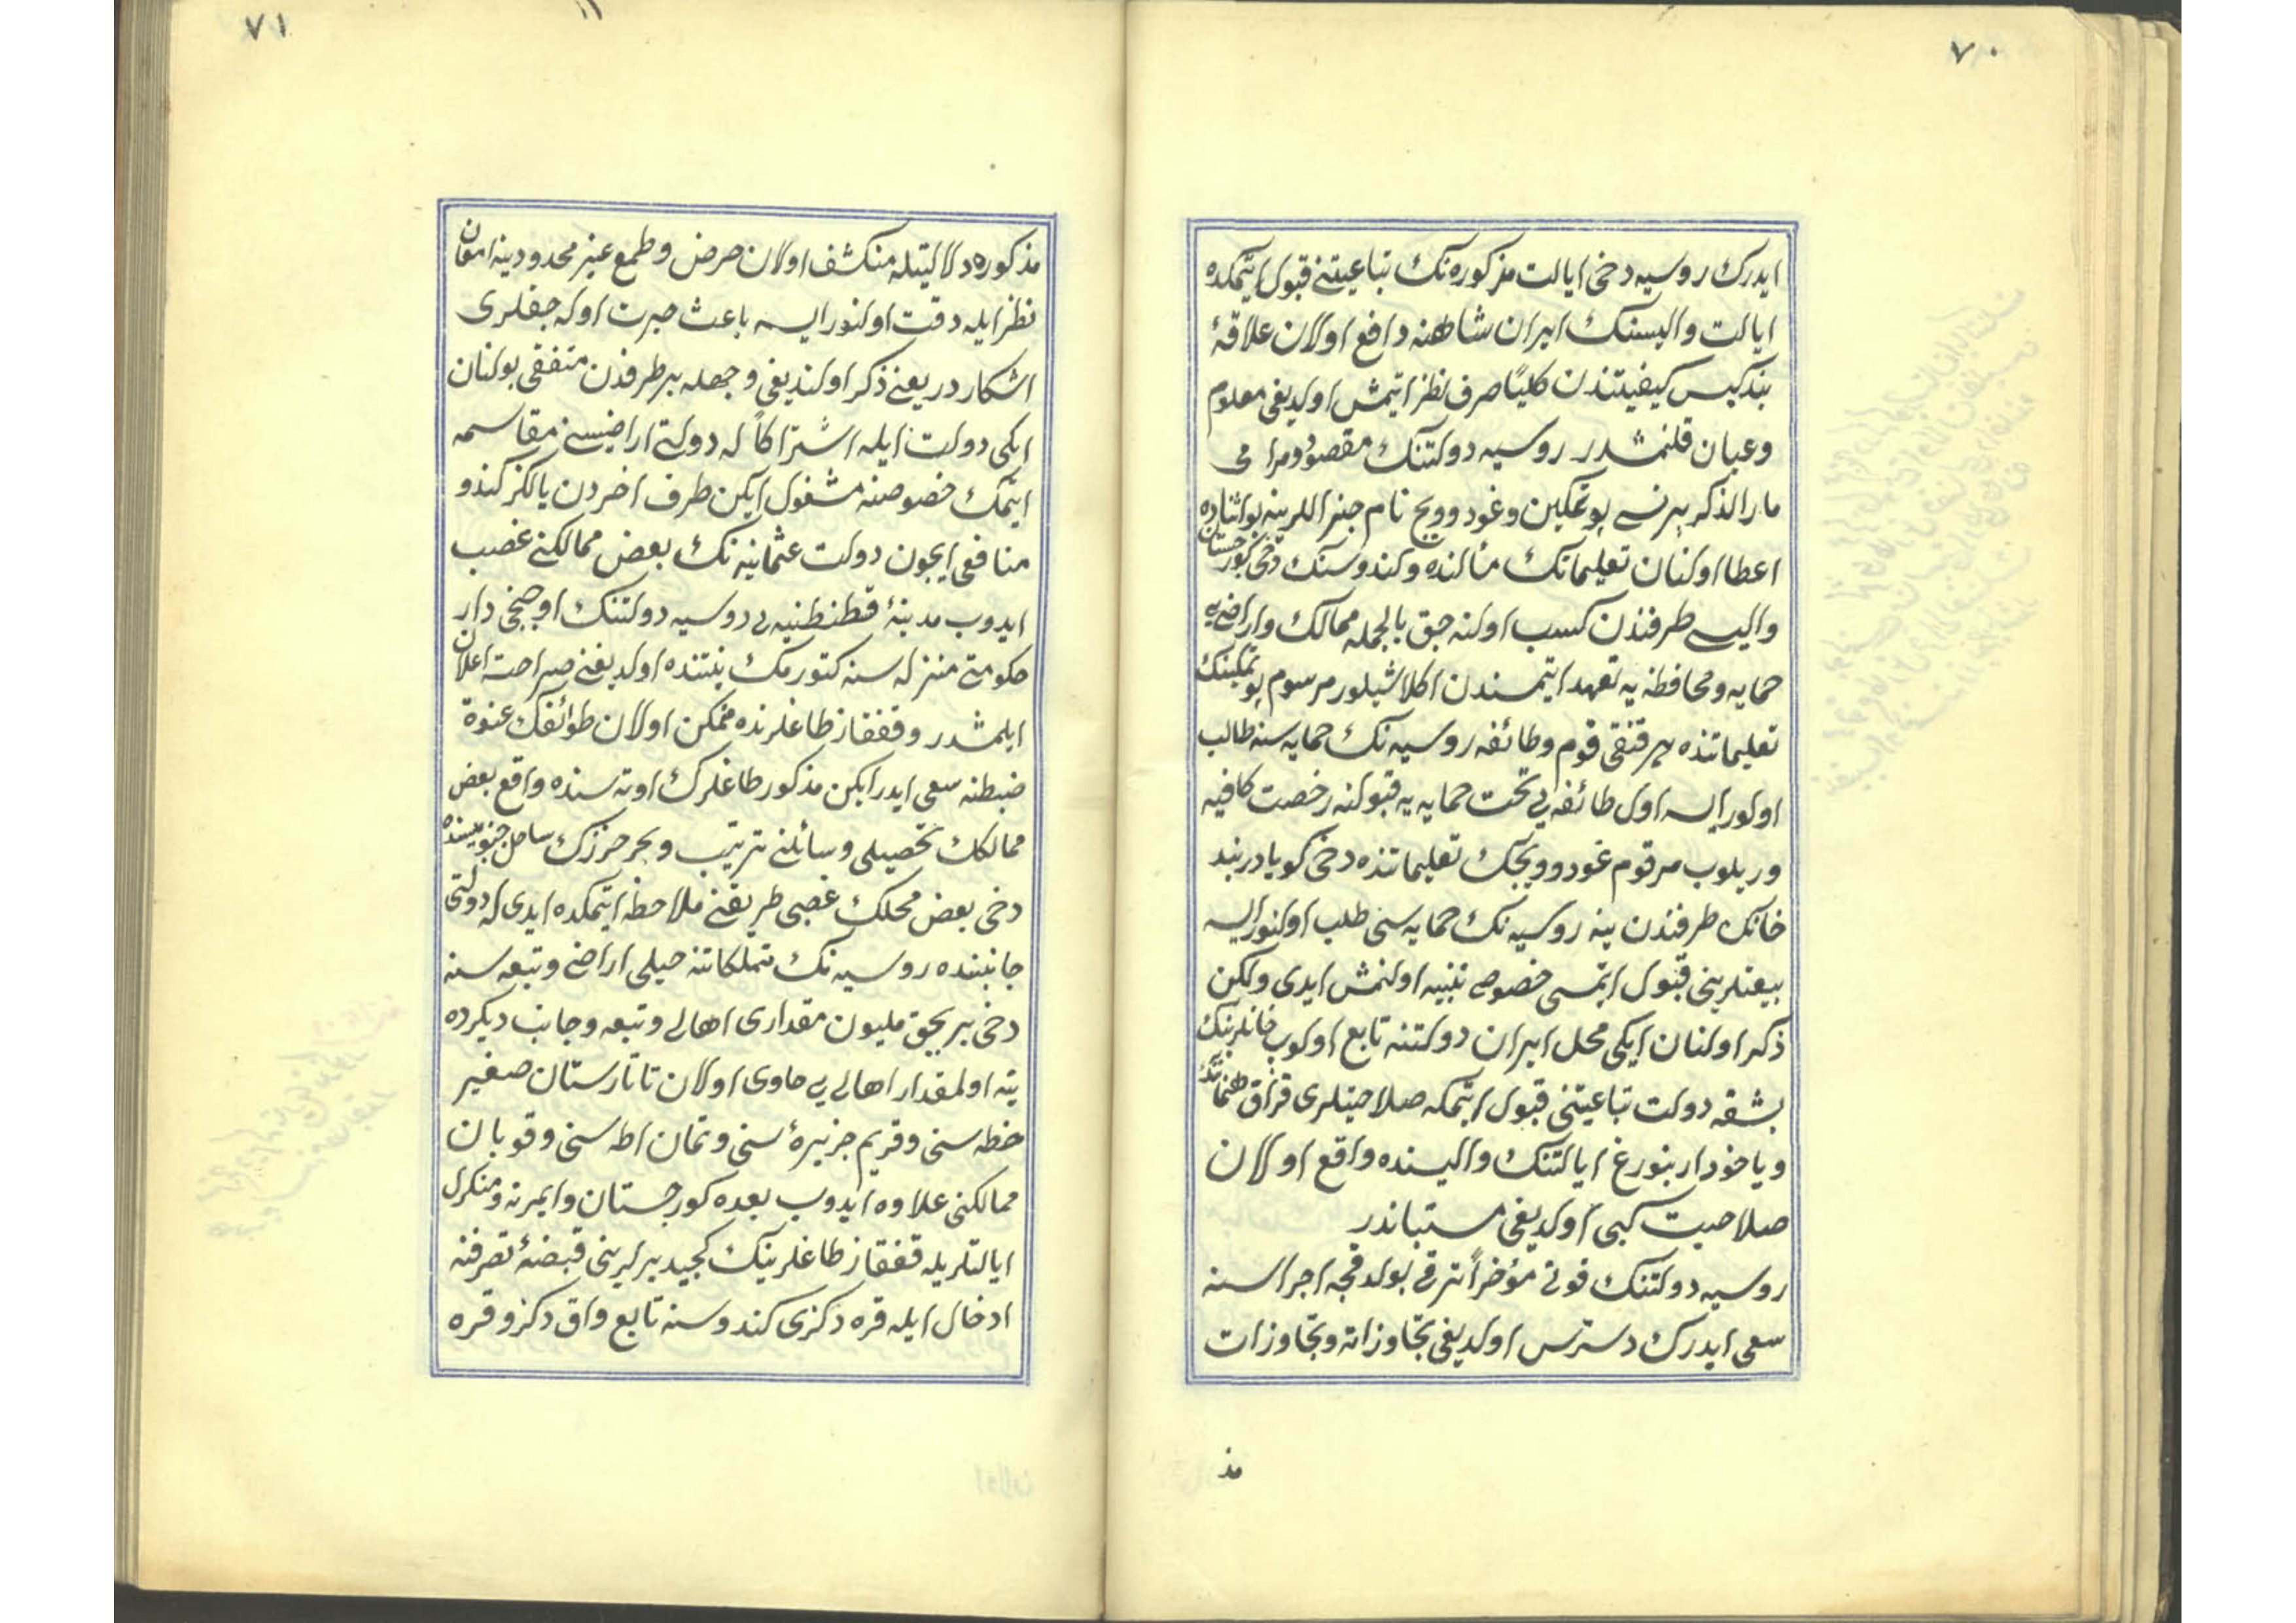 ٧٠
ايدرك روسيه دخى ايالت مذكوره نك تباعيتنى قبول ايتمكده
ايالت واليسنك ايران شاهنه دافع اولان علاقۀ
بندكيس كيفيتندن كلياً صرف نظر ايتمش اولديغى معلوم
وعيان قلنمشدر روسيه دولتنك مقصود ومرامى
مار الذكر پرنس پوتمكين وغودوويچ نام جنراللرينه بو اثناده
اعطا اولنان تعليماتك مألنده وكندوسنك دخى كورجستان
واليسى طرفندن كسب اولنه جق بالجمله ممالك واراضى يى
حمايه ومحافظه يه تعهد ايتمسندن اكلاشيلور مرسوم پوتمكينك
تعليماتنده هر قنقى قوم وطائفه روسيه نك حمايه سنه طالب
اولور ايسه اول طائفه يى تحت حمايه يه قبولنه رخصت كافيه
وريلوب مرقوم غودوويچك تعليماتنده دخى كويا دربند
خانك طرفندن ينه روسيه نك حمايه سى طلب اولنور ايسه
بيعتلرينى قبول ايتمسى خصوصى تنبيه اولنمش ايدى ولكن
ذكر اولنان ايكى محل ايران دولتنه تابع اولوب خانلرينك
بشقه دولت تباعيتنى قبول ايتمكه صلاحيتلرى قزاق طهماننك
وياخود اربنورغ ايالتنك واليسنده واقع اولان
صلاحيت كبى اولديغى مستباندر
روسيه دولتنك قوتى مؤخراً ترقى بولدقجه اجراسنه
سعى ايدرك دسترس اولديغى تجاوزاته وتجاوزات
مذ
٧١
مذكوره دلالتيله منكشف اولان حرص وطمع غير محدودينه امعان
نظر ايله دقت اولنور ايسه باعث حيرت اوله جقلرى
اشكار در يعنى ذكر اولنديغى وجهله بر طرفدن متفقى بولنان
ايكى دولت ايله اشتراكاً له دولتى اراضيسنى مقاسمه
ايتمك خصوصنه مشغول ايكن طرف اخردن يالكز كندو
منافعى ايچون دولت عثمانيه نك بعض ممالكنى غصب
ايدوب مدينۀ قطنطنيه يى روسيه دولتنك اوچنجى دار
حكومتى منزله سنه كتورمك نيتنده اولديغنى صراحت اعلان
ايلمشدر وقفقاز طاغلرنده متمكن اولان طوائفك عنوة
ضبطنه سعى ايدر ايكن مذكور طاغلرك اوته سنده واقع بعض
ممالكك تحصيلى وسائلنى ترتيب وبحر خزرك ساحل جنوبيسنده
دخى بعض محلك غصبى طريقنى ملاحظه ايتمكده ايدى له دولتى
جانبنده روسيه نك تملكاتنه خيلى اراضى وتبعه سنه
دخى بر بچق مليون مقدارى اهالى وتبعه وجانب ديكرده
ينه اولمقدار اهالى يى حاوى اولان تاتارستان صغير
خطه سنى وقريم جزيرۀ سنى وتمان اطه سنى وقوبان
ممالكنى علاوه ايدوب بعده كورجستان وايمرته ومنكرل
ايالتلريله قفقاز طاغلرينك كچيد يرلرينى قبضۀ تصرفنه
ادخال ايله قره دكزى كندوسنه تابع واق دكز وقره